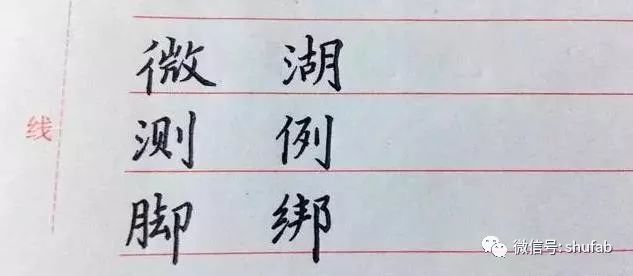 微 湖
测 例
脚 绑
线
微信号: shufab